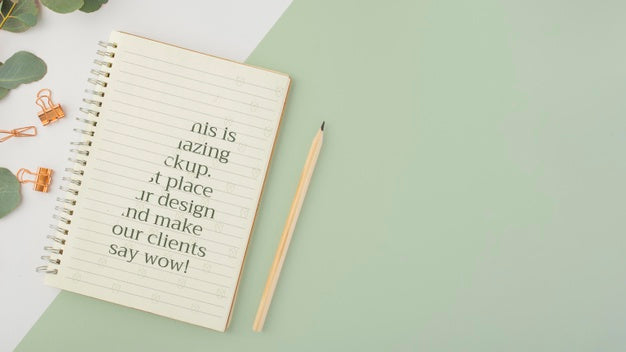 nis is
azing
ckup.
t place
r design
nd make
our clients
say wow!